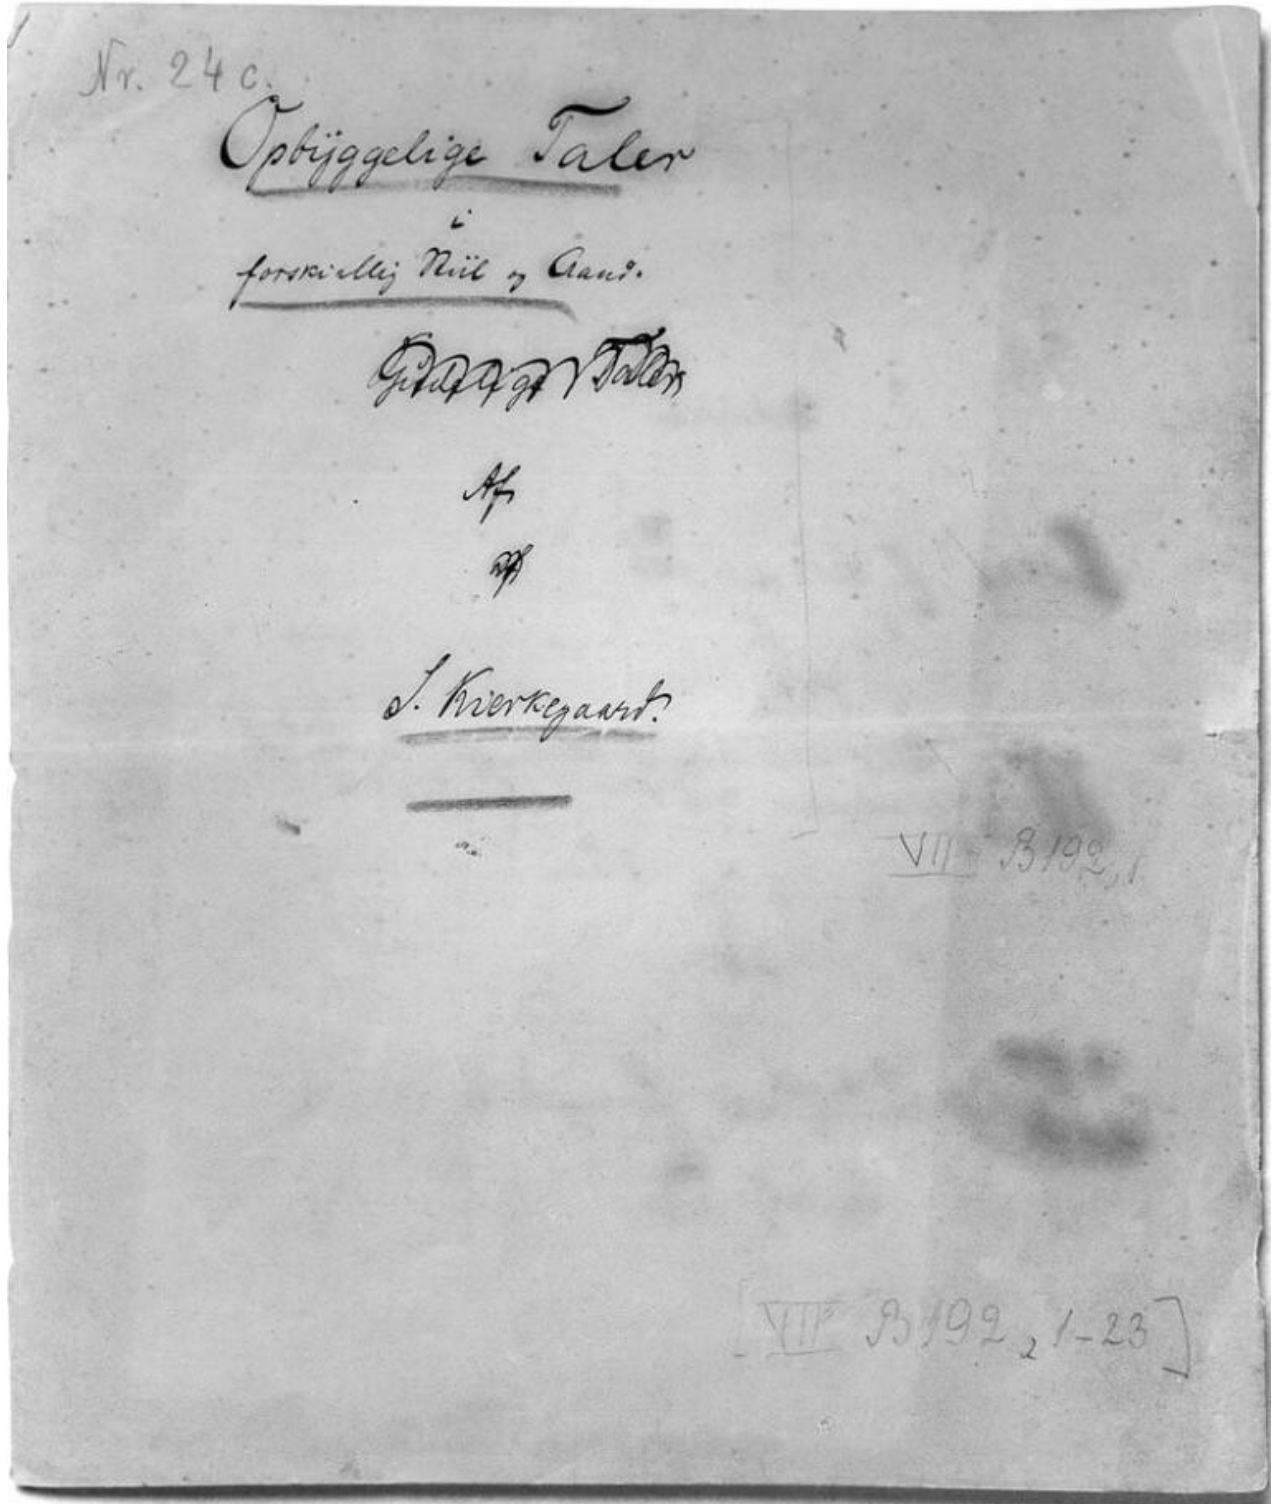 Nr. 24 c.
Opbyggelige Taler
i
forskiellig Aand og Aand.
Taler
Af
af
S. Kierkegaard.
VII B 192, 1
[VII B 192, 1-23]